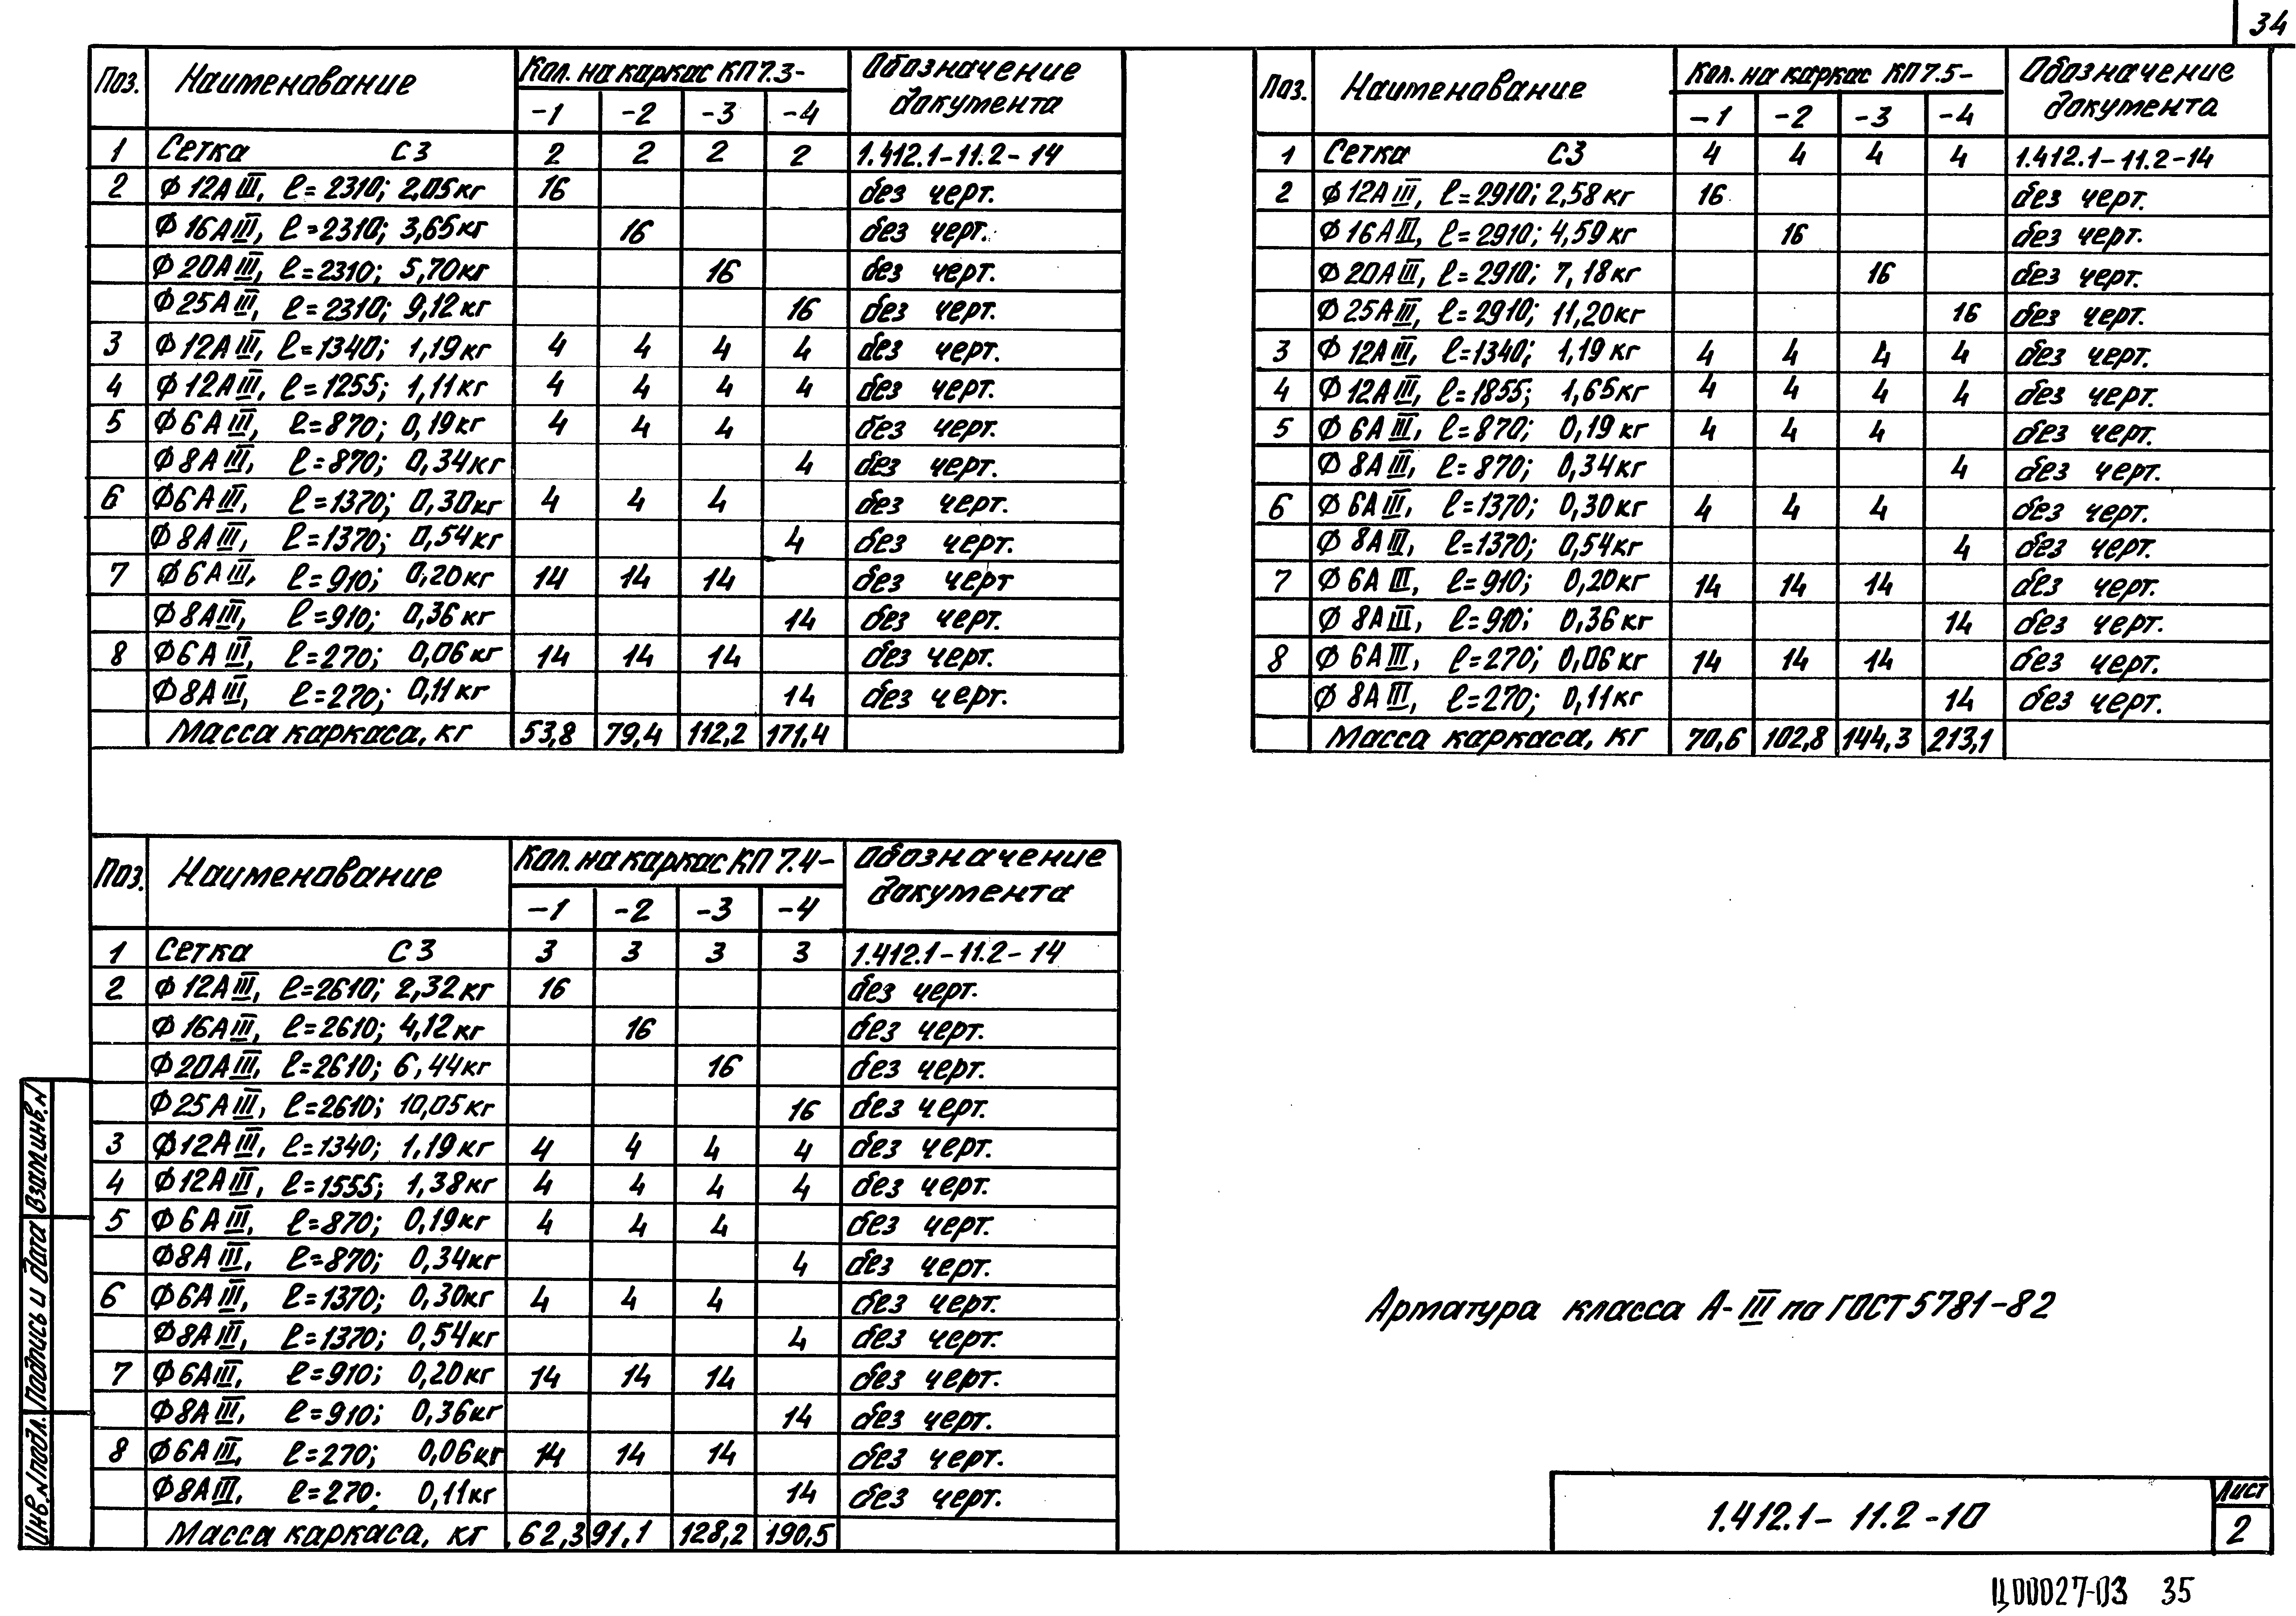 34
Поз. Наименование Кол. на каркас КП7.3- Обозначение документа
-1 -2 -3 -4
1 Сетка С3 2 2 2 2 1.412.1-11.2-14
2 Ф12АIII, ℓ=2310; 2,05кг 16 без черт.
Ф16АIII, ℓ=2310; 3,65кг 16 без черт.
Ф20АIII, ℓ=2310; 5,70кг 16 без черт.
Ф25АIII, ℓ=2310; 9,12кг 16 без черт.
3 Ф12АIII, ℓ=1340; 1,19кг 4 4 4 4 без черт.
4 Ф12АIII, ℓ=1255; 1,11кг 4 4 4 4 без черт.
5 Ф6АIII, ℓ=870; 0,19кг 4 4 4 без черт.
Ф8АIII, ℓ=870; 0,34кг 4 без черт.
6 Ф6АIII, ℓ=1370; 0,30кг 4 4 4 без черт.
Ф8АIII, ℓ=1370; 0,54кг 4 без черт.
7 Ф6АIII, ℓ=910; 0,20кг 14 14 14 без черт
Ф8АIII, ℓ=910; 0,36кг 14 без черт.
8 Ф6АIII, ℓ=270; 0,06кг 14 14 14 без черт.
Ф8АIII, ℓ=270; 0,11кг 14 без черт.
Масса каркаса, кг 53,8 79,4 112,2 171,4
Поз. Наименование Кол. на каркас КП7.5- Обозначение документа
-1 -2 -3 -4
1 Сетка С3 4 4 4 4 1.412.1-11.2-14
2 Ф12АIII, ℓ=2910; 2,58кг 16 без черт.
Ф16АIII, ℓ=2910; 4,59кг 16 без черт.
Ф20АIII, ℓ=2910; 7,18кг 16 без черт.
Ф25АIII, ℓ=2910; 11,20кг 16 без черт.
3 Ф12АIII, ℓ=1340; 1,19кг 4 4 4 4 без черт.
4 Ф12АIII, ℓ=1855; 1,65кг 4 4 4 4 без черт.
5 Ф6АIII, ℓ=870; 0,19кг 4 4 4 без черт.
Ф8АIII, ℓ=870; 0,34кг 4 без черт.
6 Ф6АIII, ℓ=1370; 0,30кг 4 4 4 без черт.
Ф8АIII, ℓ=1370; 0,54кг 4 без черт.
7 Ф6АIII, ℓ=910; 0,20кг 14 14 14 без черт.
Ф8АIII, ℓ=910; 0,36кг 14 без черт.
8 Ф6АIII, ℓ=270; 0,06кг 14 14 14 без черт.
Ф8АIII, ℓ=270; 0,11кг 14 без черт.
Масса каркаса, кг 70,6 102,8 144,3 213,1
Поз. Наименование Кол. на каркас КП7.4- Обозначение документа
-1 -2 -3 -4
1 Сетка С3 3 3 3 3 1.412.1-11.2-14
2 Ф12АIII, ℓ=2610; 2,32кг 16 без черт.
Ф16АIII, ℓ=2610; 4,12кг 16 без черт.
Ф20АIII, ℓ=2610; 6,44кг 16 без черт.
Ф25АIII, ℓ=2610; 10,05кг 16 без черт.
3 Ф12АIII, ℓ=1340; 1.19кг 4 4 4 4 без черт.
4 Ф12АIII, ℓ=1555; 1,38кг 4 4 4 4 без черт.
5 Ф6АIII, ℓ=870; 0,19кг 4 4 4 без черт.
Ф8АIII, ℓ=870; 0,34кг 4 без черт.
6 Ф6АIII, ℓ=1370; 0,30кг 4 4 4 без черт.
Ф8АIII, ℓ=1370; 0,54кг 4 без черт.
7 Ф6АIII, ℓ=910; 0,20кг 14 14 14 без черт.
Ф8АIII, ℓ=910; 0,36кг 14 без черт.
8 Ф6АIII, ℓ=270; 0,06кг 14 14 14 без черт.
Ф8АIII, ℓ=270; 0,11кг 14 без черт.
Масса каркаса, кг 62,3 91,1 128,2 190,5
Арматура класса А-III по ГОСТ 5781-82
Инв.N подл. Подпись и дата Взам.инв.N
1.412.1-11.2-10
Лист
2
Ц00027-03 35